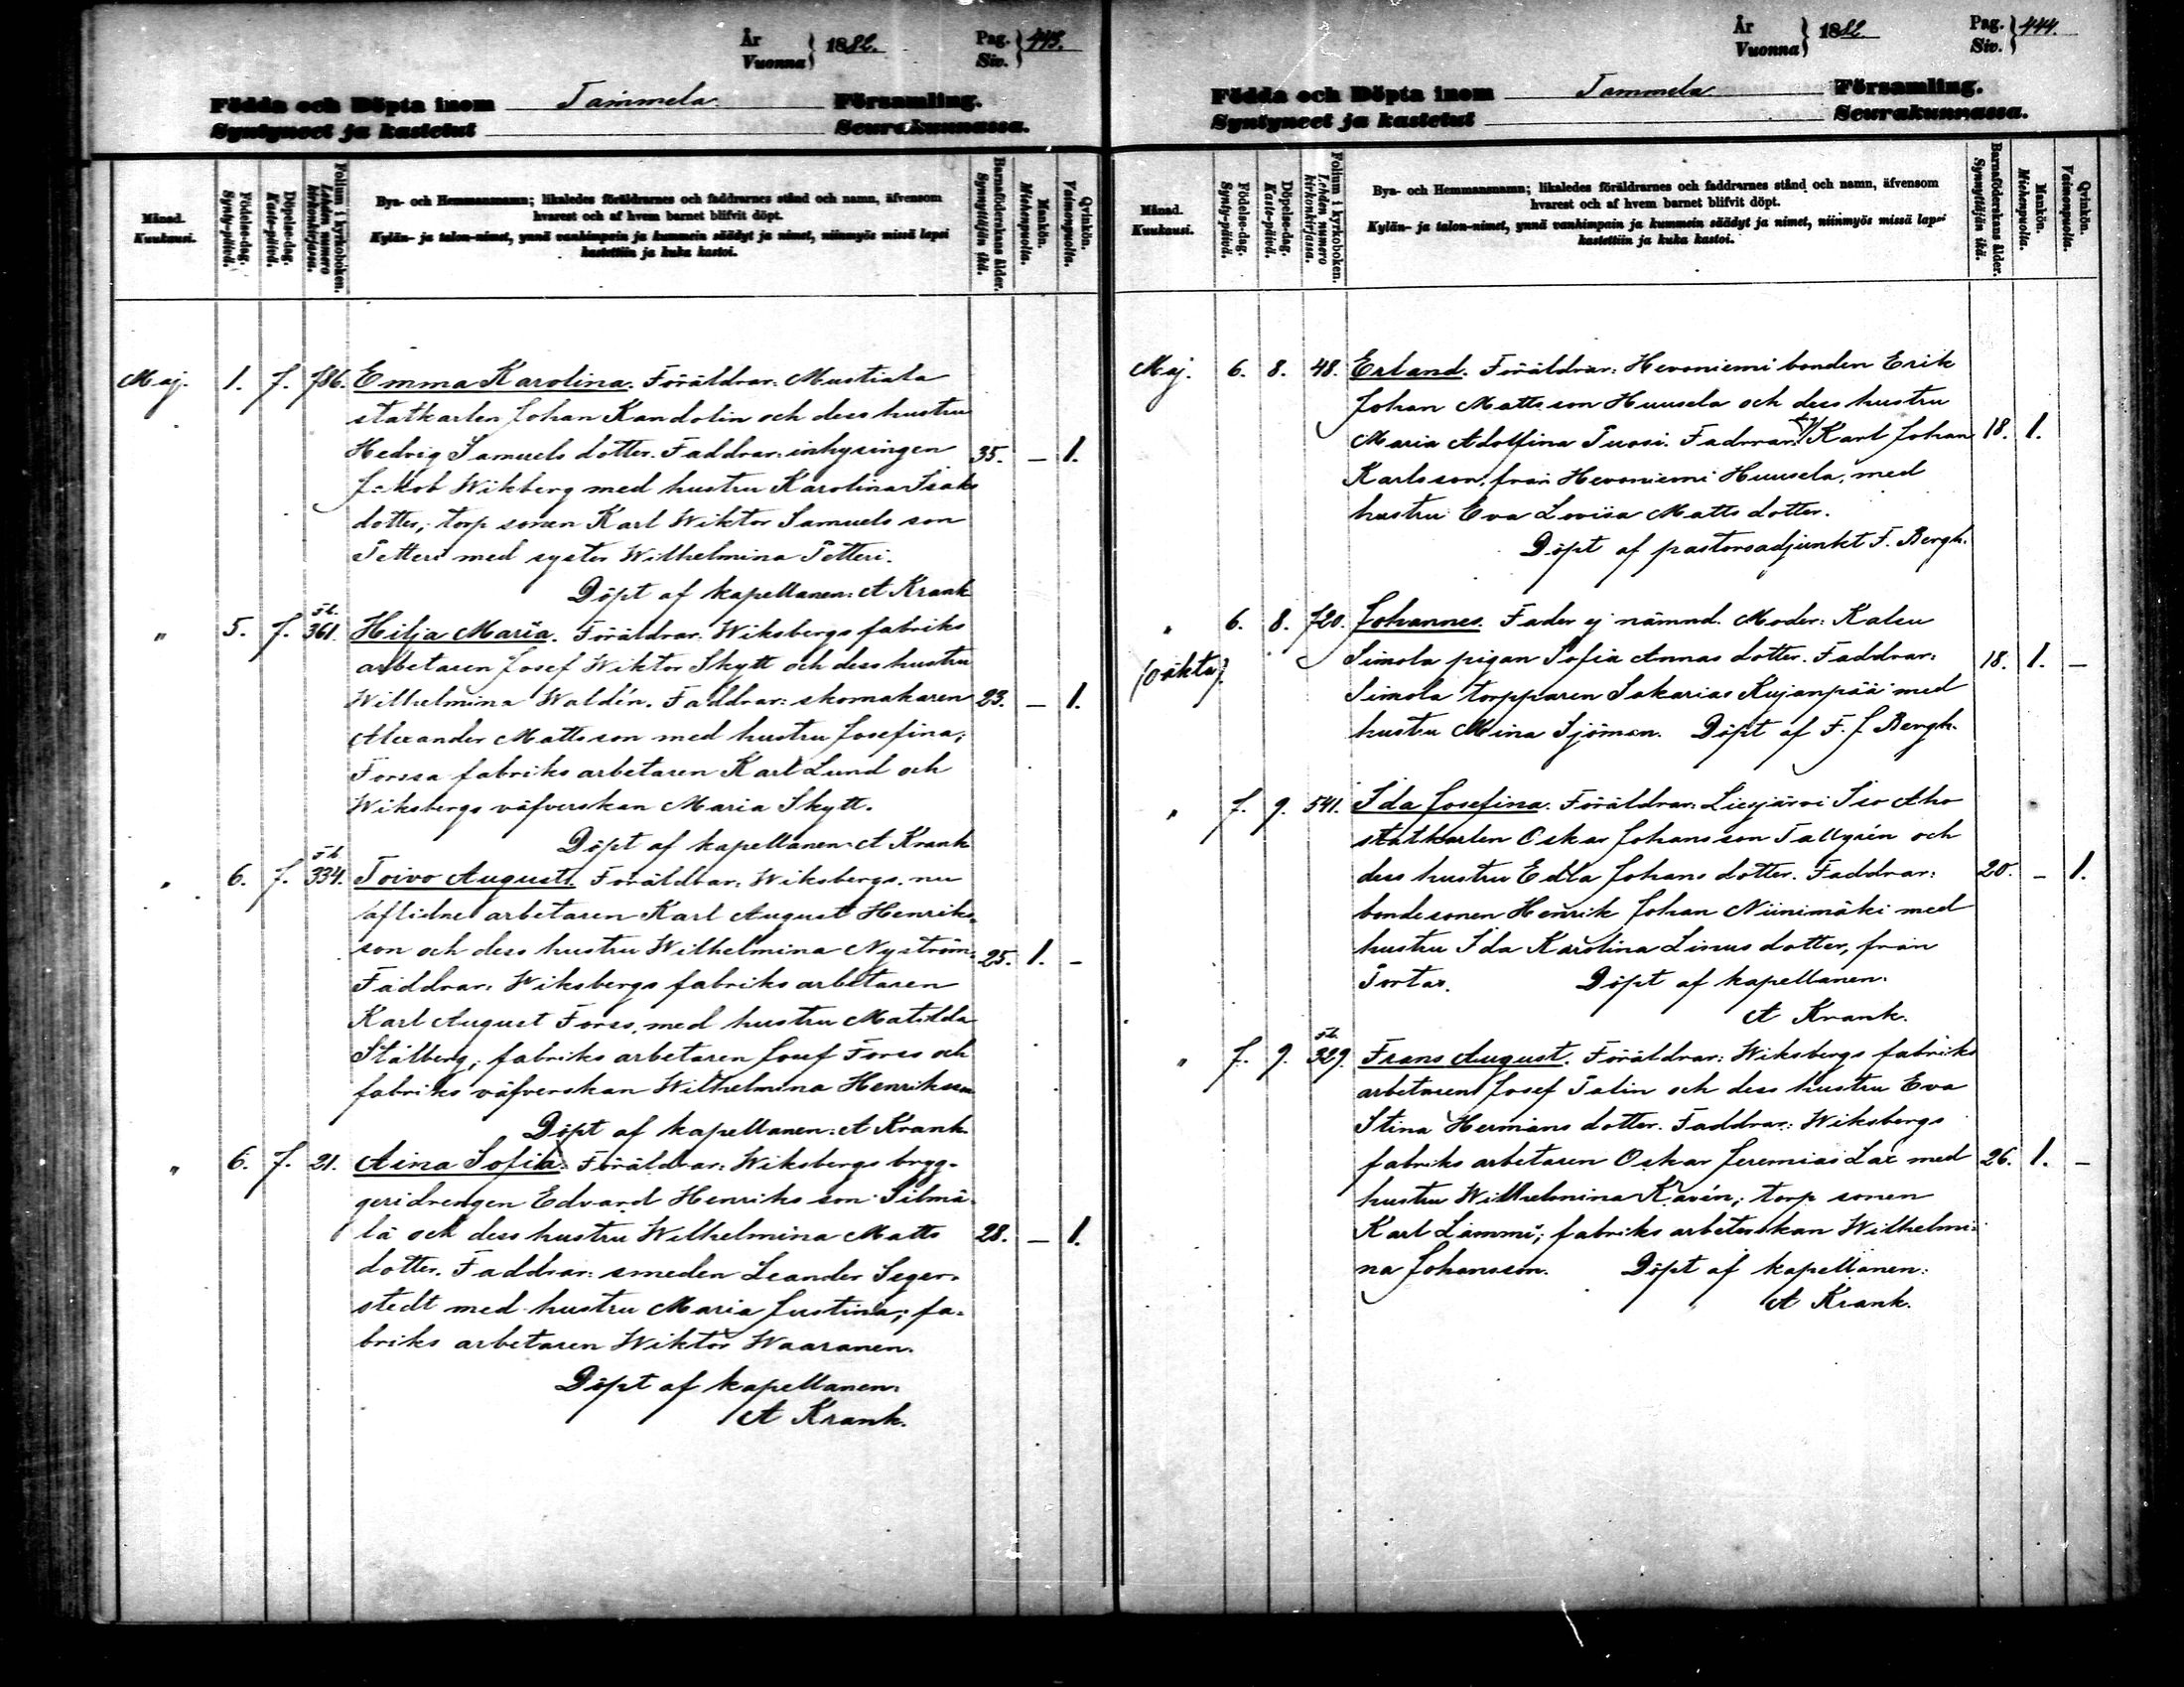 År
Vuonna } 1882.
Pag.
Siv. } 443.
Födda och Döpta inom Tammela Församling.
Syntyneet ja kastetut Seurakunnassa.
Månad.
Kuukausi.
Födelse-dag.
Synty-päivä.
Döpelse-dag.
Kaste-päivä.
Folium i kyrkoboken.
Lehden numero kirkonkirjassa.
Bya- och Hemmansnamn; likaledes föräldrarnes och faddrarnes stånd och namn, äfvensom
hvarest och af hvem barnet blifvit döpt.
Kylän- ja talon-nimet, ynnä vanhimpain ja kummein säädyt ja nimet, niinmyös missä lapsi
kastettiin ja kuka kastoi.
Barnaföderskans ålder.
Synnyttäjän ikä.
Mankön.
Miehenpuolia.
Qvinkön.
Vaimonpuolia.
Maj. 1. 7. 786. Emma Karolina. Föräldrar: Mustiala
statkarlen Johan Kandolin och dess hustru
Hedvig Samuels dotter. Faddrar: inhysingen 35. — 1.
Jakob Wikberg med hustru Karolina Isaks
dotter; torp sonen Karl Wiktor Samuels son
Petteri med syster Wilhelmina Petteri.
Döpt af kapellanen: A Krank
" 5. 7. 361. Hilja Maria. Föräldrar: Wiksbergs fabriks
arbetaren Josef Wiktor Skytt och dess hustru
Wilhelmina Waldén. Faddrar: skomakaren 23. — 1.
Alexander Mattsson med hustru Josefina;
Forssa fabriks arbetaren Karl Lund och
Wiksbergs väfverskan Maria Skytt.
Döpt af kapellanen: A Krank
" 6. 7. 334. Toivo August. Föräldrar: Wiksbergs nu
aflidne arbetaren Karl August Henriks
son och dess hustru Wilhelmina Nyström. 25. 1. —
Faddrar: Wiksbergs fabriks arbetaren
Karl August Forss, med hustru Matilda
Stålberg; fabriks arbetaren Josef Forss och
fabriks väfverskan Wilhelmina Henriksson
Döpt af kapellanen: A Krank.
" 6. 7. 21. Aina Sofia. Föräldrar: Wiksbergs brygg-
geridrengen Edvard Henriks son Silmä-
lä och dess hustru Wilhelmina Matts 28. — 1.
dotter. Faddrar: smeden Leander Seger-
stedt med hustru Maria Justina; fa-
briks arbetaren Wiktor Waaranen.
Döpt af kapellanen:
A Krank.
År
Vuonna } 1882
Pag.
Siv. } 444.
Födda och Döpta inom Tammela Församling.
Syntyneet ja kastetut Seurakunnassa.
Månad.
Kuukausi.
Födelse-dag.
Synty-päivä.
Döpelse-dag.
Kaste-päivä.
Folium i kyrkoboken.
Lehden numero kirkonkirjassa.
Bya- och Hemmansnamn; likaledes föräldrarnes och faddrarnes stånd och namn, äfvensom
hvarest och af hvem barnet blifvit döpt.
Kylän- ja talon-nimet, ynnä vanhimpain ja kummein säädyt ja nimet, niinmyös missä lapsi
kastettiin ja kuka kastoi.
Barnaföderskans ålder.
Synnyttäjän ikä.
Mankön.
Miehenpuolia.
Qvinkön.
Vaimonpuolia.
Maj. 6. 8. 48. Erland. Föräldrar: Hevoniemi bonden Erik
Johan Mattsson Huusela och dess hustru
Maria Adolfina Tuosi. Faddrar: Karl Johan 18. 1.
Karlsson, från Hevoniemi Huusela, med
hustru Eva Lovisa Matts dotter.
Döpt af pastorsadjunkt F. Bergh.
" 6. 8. 720. Johannes. Fader ej nämnd. Moder: Kalsu
(oäkta). Simola pigan Sofia Annas dotter. Faddrar: 18. 1. —
Simola torpparen Sakarias Kujanpää med
hustru Mina Sjöman. Döpt af F. J Bergh.
" 7. 9. 541. Ida Josefina. Föräldrar: Liesjärvi Iso Aho
statkarlen Oskar Johansson Tallgrén och
dess hustru Edla Johans dotter. Faddrar: 20. — 1.
bondesonen Henrik Johan Niinimäki med
hustru Ida Karolina Linus dotter, från
Portas. Döpt af kapellanen:
A Krank.
" 7. 9. 329. Frans August. Föräldrar: Wiksbergs fabriks
arbetaren Josef Palin och dess hustru Eva
Stina Hermans dotter. Faddrar: Wiksbergs
fabriks arbetaren Oskar Jeremias Lax med 26. 1. —
hustru Wilhelmina Kavén; torp sonen
Karl Lammi; fabriks arbeterskan Wilhelmi-
na Johansson. Döpt af kapellanen:
A Krank.